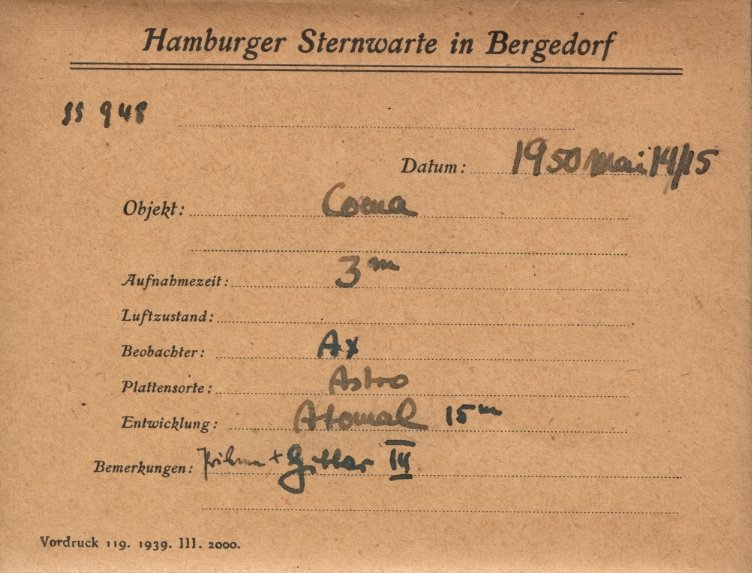 Hamburger Sternwarte in Bergedorf
SS 948
Datum: 1950 Mai 14/15
Objekt: Coma
Aufnahmezeit: 3m
Luftzustand:
Beobachter: Ax
Plattensorte: Astro
Entwicklung: Atomal 15m
Bemerkungen: + Gitter
Vordruck 119. 1939. III. 2000.